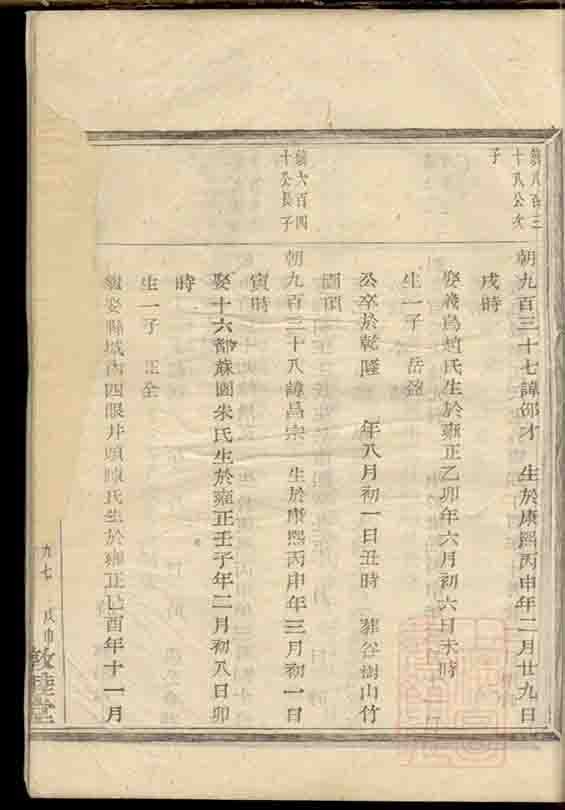 第八百三
十八公次
子
朝九百三十七諱邵才 生於康熙丙申年二月廿九日
戌時
娶義烏趙氏生於雍正乙卯年六月初六日未時
生一子 岳盈
公卒於乾隆 年八月初一日丑時 葬谷樹山竹
園頂
第六百四
十公長子
朝九百三十八諱昌宗 生於康熙丙申年三月初一日
寅時
娶十六都蘇園朱氏生於雍正壬子年二月初八日卯
時
生一子 正全
娶縣城內四眼井頭陳氏生於雍正己酉年十一月
九七
戊申
敦睦堂